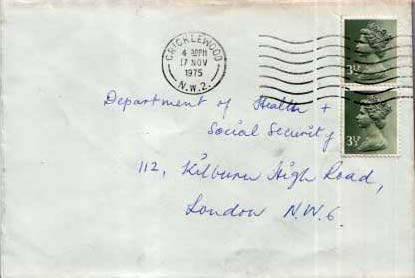 CRICKLEWOOD
4 30PM
17 NOV
1975
N.W.2.
3½
3½
Department of Health +
Social Security
112, Kilburn High Road,
London N.W.6.